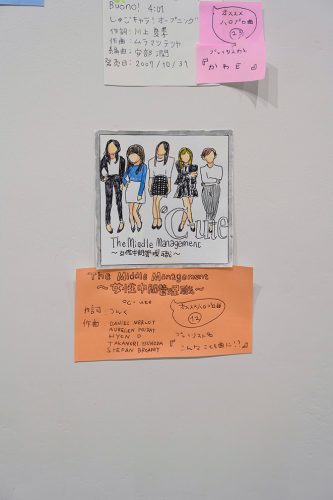 Buono! 4:01
しゅごキャラ! オープニング
作詞: 川上夏季
作曲: ムラマツテツヤ
編曲: 安部潤
発売日: 2007/10/31
オススメ
ハロプロ曲
プレイリスト名
『かわE』
℃-ute
The Middle Management
〜女性中間管理職〜
The Middle Management
〜女性中間管理職〜
℃-ute
作詞 つんく
作曲 DANIEL MERLOT
AURELIEN POIDAT
HYON D
TAKANORI
STEFAN BROADLEY
オススメハロプロ曲
12
プレイリスト名
『こんなことも曲に!?』